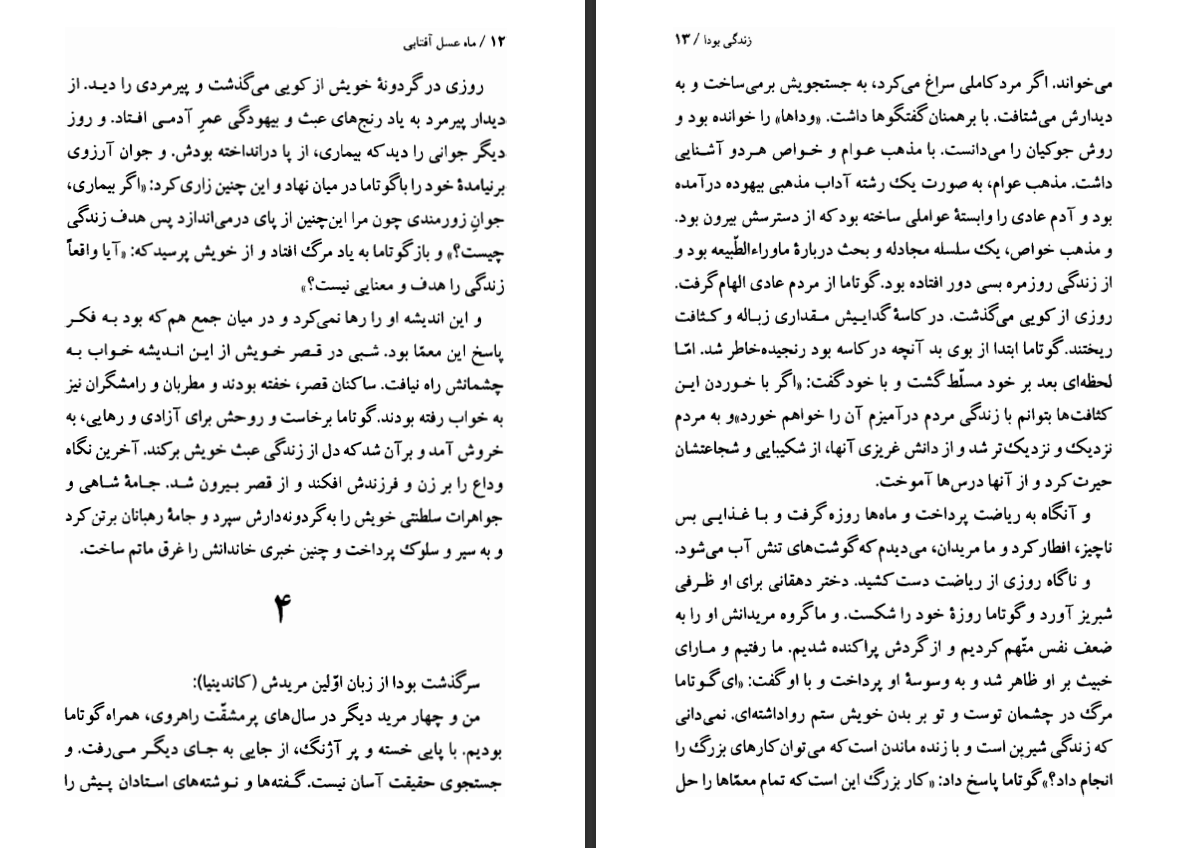 ۱۲ / ماه عسل آفتابی
روزی در گردونهٔ خویش از کویی می‌گذشت و پیرمردی را دید. از
دیدار پیرمرد به یاد رنج‌های عبث و بیهودگی عمرِ آدمی افتاد. و روز
دیگر جوانی را دید که بیماری، از پا درانداخته بودش. و جوان آرزوی
برنیامدهٔ خود را با گوتاما در میان نهاد و این چنین زاری کرد: «اگر بیماری،
جوانِ زورمندی چون مرا این‌چنین از پای درمی‌اندازد پس هدف زندگی
چیست؟» و باز گوتاما به یاد مرگ افتاد و از خویش پرسید که: «آیا واقعاً
زندگی را هدف و معنایی نیست؟»
و این اندیشه او را رها نمی‌کرد و در میان جمع هم که بود به فکر
پاسخ این معمّا بود. شبی در قصر خویش از این اندیشه خواب به
چشمانش راه نیافت. ساکنان قصر، خفته بودند و مطربان و رامشگران نیز
به خواب رفته بودند. گوتاما برخاست و روحش برای آزادی و رهایی، به
خروش آمد و برآن شد که دل از زندگی عبث خویش برکند. آخرین نگاه
وداع را بر زن و فرزندش افکند و از قصر بیرون شد. جامهٔ شاهی و
جواهرات سلطنتی خویش را به گردونه‌دارش سپرد و جامهٔ رهبانان برتن کرد
و به سیر و سلوک پرداخت و چنین خبری خاندانش را غرق ماتم ساخت.
۴
سرگذشت بودا از زبان اوّلین مریدش (کاندینیا):
من و چهار مرید دیگر در سال‌های پرمشقّت راهروی، همراه گوتاما
بودیم. با پایی خسته و پر آژنگ، از جایی به جای دیگر می‌رفت. و
جستجوی حقیقت آسان نیست. گفته‌ها و نوشته‌های استادان پیش را
زندگی بودا / ۱۳
می‌خواند. اگر مرد کاملی سراغ می‌کرد، به جستجویش برمی‌ساخت و به
دیدارش می‌شتافت. با برهمنان گفتگوها داشت. «وداها» را خوانده بود و
روش جوکیان را می‌دانست. با مذهب عوام و خواص هردو آشنایی
داشت. مذهب عوام، به صورت یک رشته آداب مذهبی بیهوده درآمده
بود و آدم عادی را وابستهٔ عواملی ساخته بود که از دسترسش بیرون بود.
و مذهب خواص، یک سلسله مجادله و بحث دربارهٔ ماوراءالطّبیعه بود و
از زندگی روزمره بسی دور افتاده بود. گوتاما از مردم عادی الهام گرفت.
روزی از کویی می‌گذشت. در کاسهٔ گداییش مقداری زباله و کثافت
ریختند. گوتاما ابتدا از بوی بد آنچه در کاسه بود رنجیده‌خاطر شد. امّا
لحظه‌ای بعد بر خود مسلّط گشت و با خود گفت: «اگر با خوردن این
کثافت‌ها بتوانم با زندگی مردم درآمیزم آن را خواهم خورد»و به مردم
نزدیک و نزدیک‌تر شد و از دانش غریزی آنها، از شکیبایی و شجاعتشان
حیرت کرد و از آنها درس‌ها آموخت.
و آنگاه به ریاضت پرداخت و ماه‌ها روزه گرفت و با غذایی بس
ناچیز، افطار کرد و ما مریدان، می‌دیدم که گوشت‌های تنش آب می‌شود.
و ناگاه روزی از ریاضت دست کشید. دختر دهقانی برای او ظرفی
شبریز آورد و گوتاما روزهٔ خود را شکست. و ما گروه مریدانش او را به
ضعف نفس متّهم کردیم و از گردش پراکنده شدیم. ما رفتیم و مارای
خبیث بر او ظاهر شد و به وسوسهٔ او پرداخت و با او گفت: «ای گوتاما
مرگ در چشمان توست و تو بر بدن خویش ستم رواداشته‌ای. نمی‌دانی
که زندگی شیرین است و با زنده ماندن است که می‌توان کارهای بزرگ را
انجام داد؟» گوتاما پاسخ داد: «کار بزرگ این است که تمام معمّاها را حل